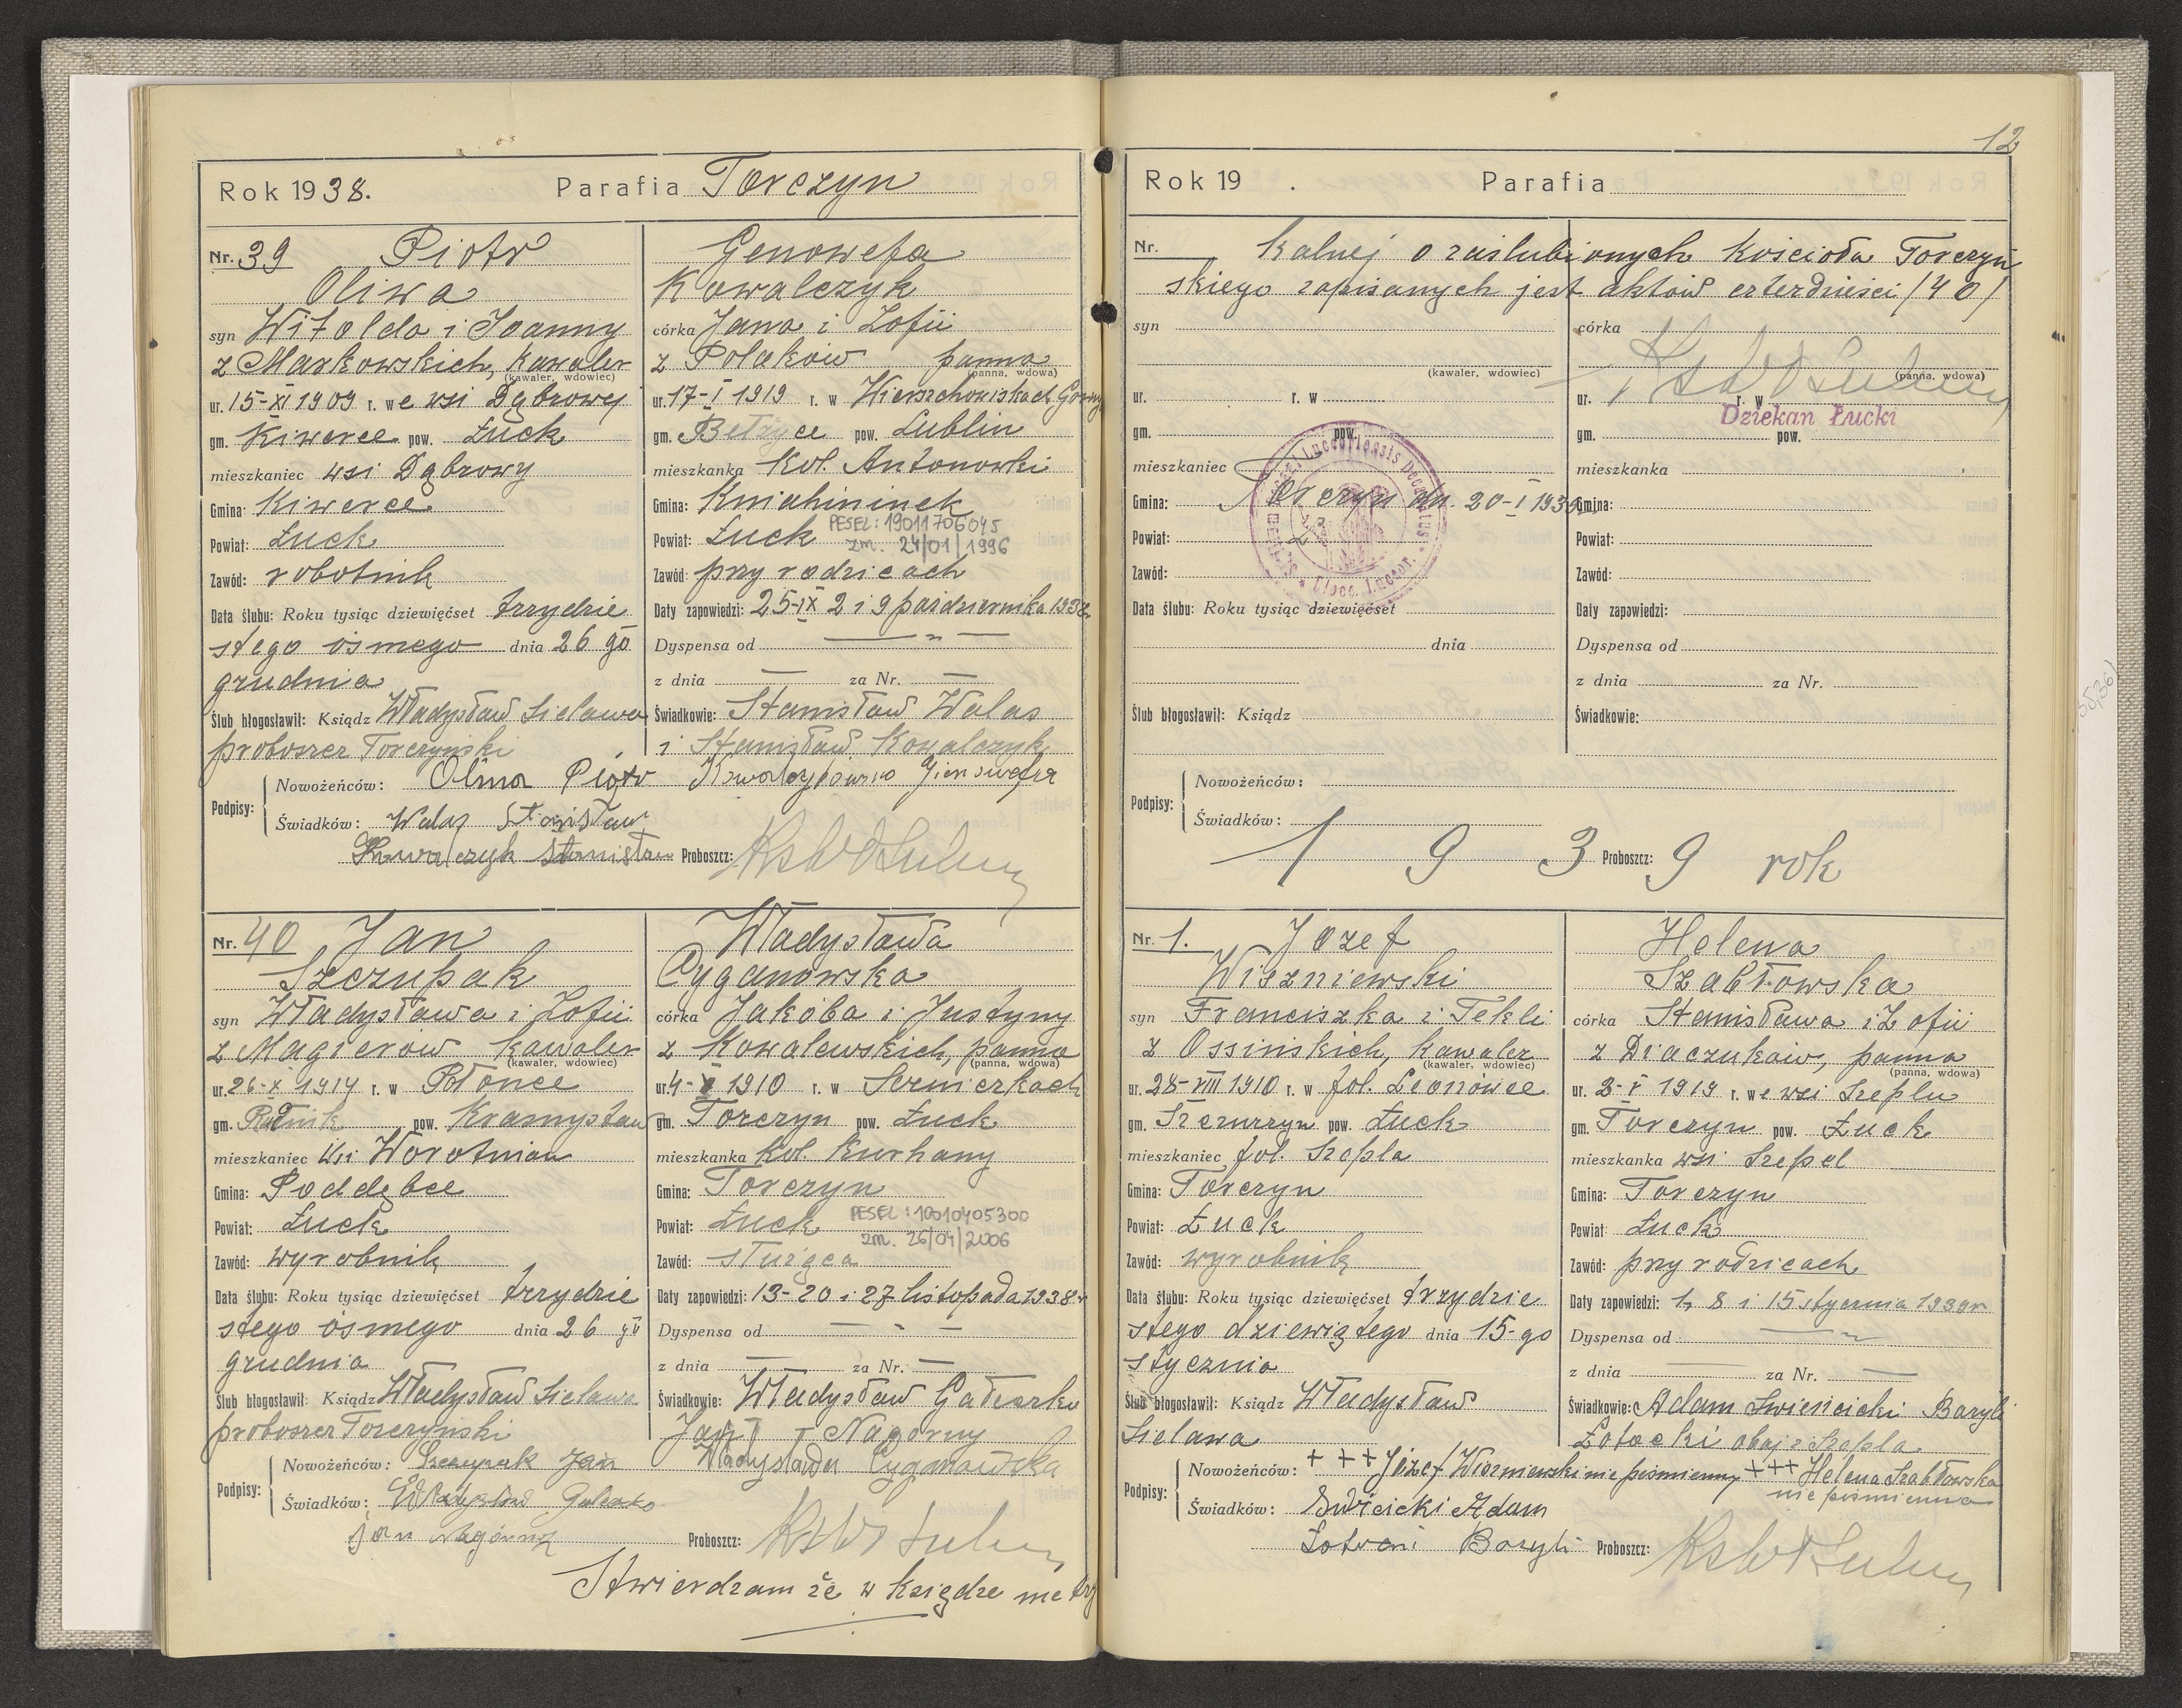 Rok 1938. Parafia Torczyn
Nr. 39 Piotr
Oliwa
syn Witolda i Joanny
z Markowskich, kawaler
(kawaler, wdowiec)
ur. 15-XI 1909 r. we wsi Dąbrowej
gm. Kiwerce pow. Łuck
mieszkaniec wsi Dąbrowy
Gmina: Kiwerce
Powiat: Łuck
Zawód: robotnik
Data ślubu: Roku tysiąc dziewięćset trzydzie
stego ósmego dnia 26 go
grudnia
Ślub błogosławił: Ksiądz Władysław Sielawa
proboszcz Torczyński
Genowefa
Kowalczyk
córka Jana i Zofii
z Polaków panna
(panna, wdowa)
ur. 17-I 1919 r. w Wierzchowiskach Górnych
gm. Bełżyce pow. Lublin
mieszkanka kol. Antonowki
Gmina: Kniahininek
Powiat: Łuck
PESEL: 19011706045
zm. 24/01/1996
Zawód: przy rodzicach
Daty zapowiedzi: 25-IX 2 i 9 października 1938r
Dyspensa od — " —
z dnia — za Nr. —
Świadkowie: Stanisław Walas
i Stanisław Kowalczyk
Podpisy:
Nowożeńców: Oliwa Piotr Kowalczykówna Gienowefa
Świadków: Walas Stanisław
Kowalczyk Stanisław Proboszcz:
Nr. 40 Jan
Szczupak
syn Władysława i Zofii
z Magierow kawaler
(kawaler, wdowiec)
ur. 26-X 1914 r. w Połonce
gm. pow. Krasnystaw
mieszkaniec wsi Worotniow
Gmina: Poddębce
Powiat: Łuck
Zawód: wyrobnik
Data ślubu: Roku tysiąc dziewięćset trzydzie
stego ósmego dnia 26 go
grudnia
Ślub błogosławił: Ksiądz Władysław Sielawa
proboszcz Torczyński
Władysława
Cyganowska
córka Jakóba i Justyny
z Kowalewskich, panna
(panna, wdowa)
ur. 4- 1910 r. w Szmierkach
gm. Torczyn pow. Łuck
mieszkanka kol. Kurhany
Gmina: Torczyn
Powiat: Łuck
PESEL: 10010405300
zm. 26/04/2006
Zawód: służąca
Daty zapowiedzi: 13-20 i 27 listopada 1938r
Dyspensa od — " —
z dnia — za Nr. —
Świadkowie: Władysław
Jan Nagórny
Podpisy:
Nowożeńców: Szczupak Jan Władysława Cyganowska
Świadków: Władysław
Jan Nagórny Proboszcz:
Stwierdzam że w księdze metry
12
Rok 19 . Parafia
Nr. kalnej o zaślubionych kościoła Torczyń
skiego zapisanych jest aktów czterdzieści /40/
syn
(kawaler, wdowiec)
ur. r. w
gm. pow.
mieszkaniec
Gmina: Torczyn dn. 20-I 1939
Powiat:
Zawód:
Data ślubu: Roku tysiąc dziewięćset
dnia
Ślub błogosławił: Ksiądz
córka
(panna, wdowa)
ur. r. w
Dziekan Łucki
gm. pow.
mieszkanka
Gmina:
Powiat:
Zawód:
Daty zapowiedzi:
Dyspensa od
z dnia za Nr.
Świadkowie:
Podpisy:
Nowożeńców:
Świadków:
Proboszcz:
1 9 3 9 rok
Nr. 1. Józef
Wiszniewski
syn Franciszka i Tekli
z Ossińskich, kawaler
(kawaler, wdowiec)
ur. 28-VIII 1910 r. w fol. Leonowce
gm. Szczurzyn pow. Łuck
mieszkaniec fol. Szepla
Gmina: Torczyn
Powiat: Łuck
Zawód: wyrobnik
Data ślubu: Roku tysiąc dziewięćset trzydzie
stego dziewiątego dnia 15-go
stycznia
Ślub błogosławił: Ksiądz Władysław
Sielawa
Helena
Szabłowska
córka Stanisława i Zofii
z Diaczuków, panna
(panna, wdowa)
ur. 3-V 1919 r. we wsi Szeplu
gm. Torczyn pow. Łuck
mieszkanka wsi Szepel
Gmina: Torczyn
Powiat: Łuck
Zawód: przy rodzicach
Daty zapowiedzi: 1, 8 i 15 stycznia 1939r
Dyspensa od — " —
z dnia — za Nr. —
Świadkowie: Adam Świencicki Bazyli
Łotocki obaj z Szepla
Podpisy:
Nowożeńców: + + + Józef Wiszniewski nie piśmienny + + + Helena Szabłowska
nie piśmienna
Świadków: Adam
Bazyli Proboszcz: